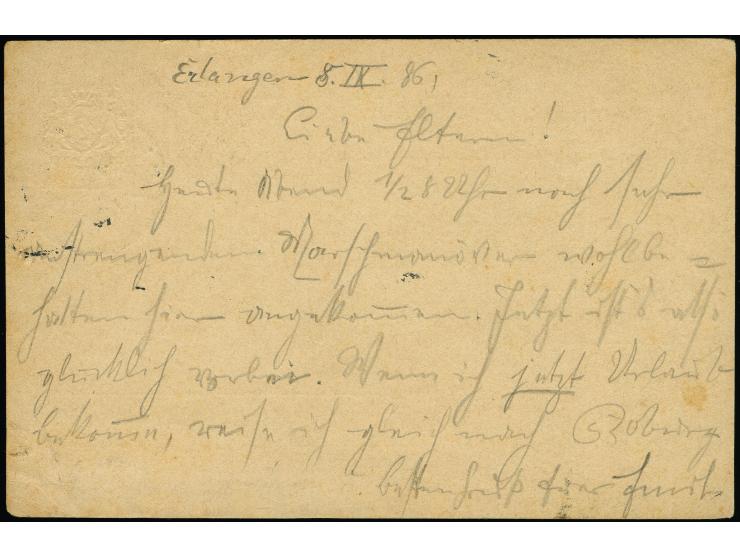 Erlangen 8. IX. 86,
Liebe Eltern!
Heute Abend 1/2 8 Uhr nach sehr
anstrengenden Marschmanöver wohlbe-
halten hier angekommen. Jetzt ist's also
glücklich vorbei. Wenn ich jetzt Urlaub
bekomme, reise ich gleich nach Coburg
besten Gruß Euer Emil.